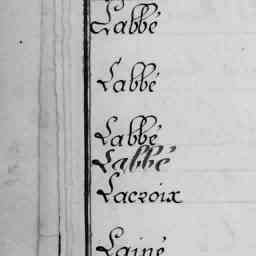 Labbé
Labbé
Labbé
Labbé
Lacroix
Lainé